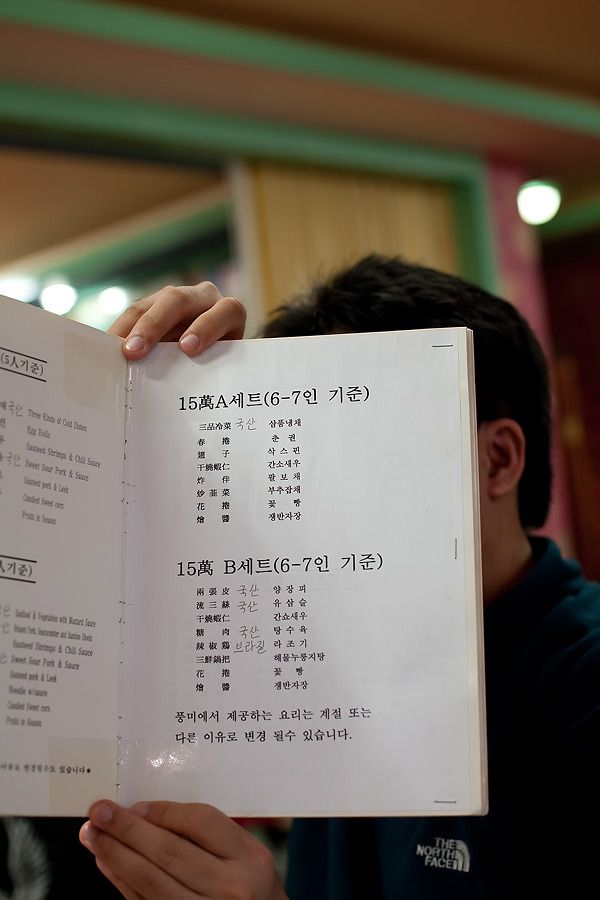 (5人기준)
국산 Three Kinds of Cold Dishes
Egg Rolls
Sauteed Shrimps & Chili Sauce
국산 Sweet Sour Pork & Sauce
Sauteed pork & Leek
Candied Sweet corn
Fruits in Season
인기준)
Seafood & Vegetables with Mustard Sauce
Sauteed Shrimps & Chili Sauce
Sweet Sour Pork & Sauce
Sauteed pork & Leek
Noodle w/sauce
Candied Sweet corn
Fruits in Season
변경될수도 있습니다*
15萬A세트(6-7인 기준)
三品冷菜 국산 삼품냉채
春捲 춘권
翅子 삭스핀
干燒蝦仁 간소새우
炸伴 팔보채
炒韮菜 부추잡채
花捲 꽃빵
燴醬 쟁반자장
15萬 B세트(6-7인 기준)
兩張皮 국산 양장피
流三絲 국산 유삼슬
干燒蝦仁 간쇼새우
糖肉 국산 탕수육
辣椒鷄 브라질 라조기
三鮮鍋把 해물누룽지탕
花捲 꽃빵
燴醬 쟁반자장
풍미에서 제공하는 요리는 계절 또는
다른 이유로 변경 될수 있습니다.
THE
NORTH
FACE